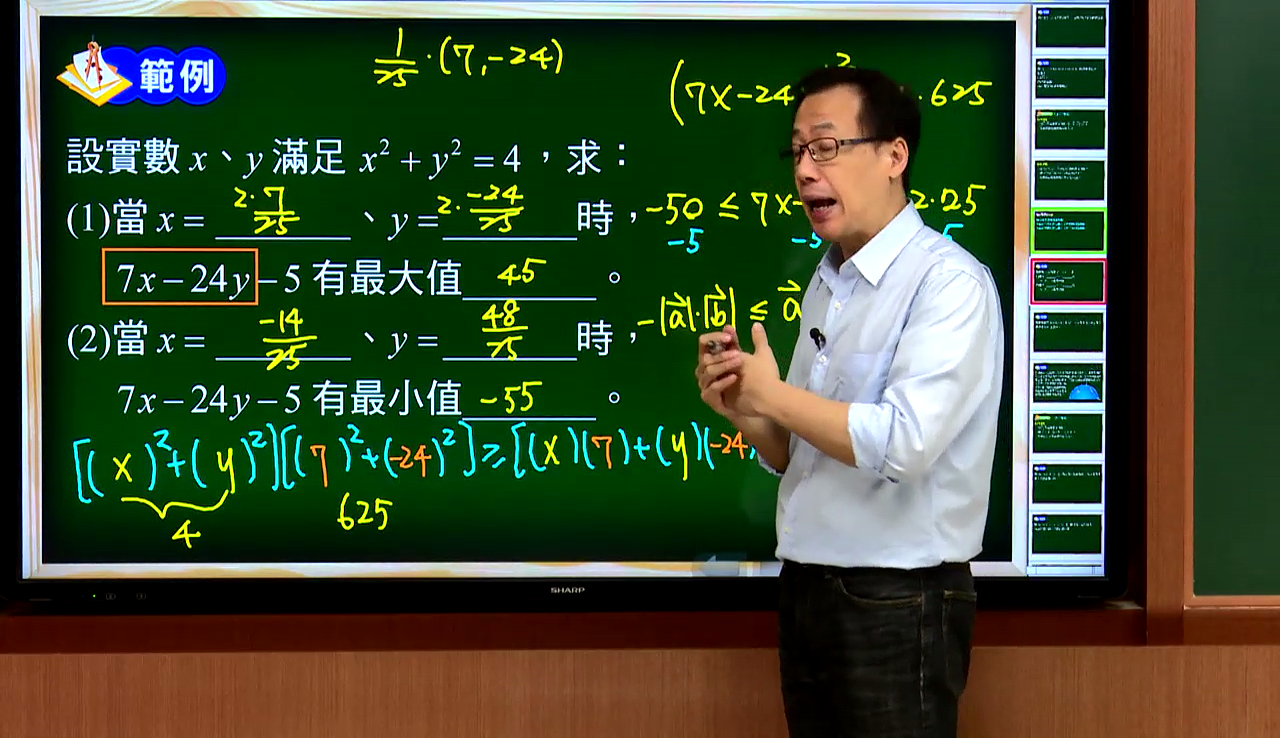 範例
1/25 · (7, -24)
(7x-24 2 . 625
設實數 x、y 滿足 x² + y² = 4，求：
(1)當 x = 2·7/25 、y = 2·-24/25 時，
-50 ≤ 7x- 2·25
-5 -5 5
7x − 24y − 5 有最大值 45 。
(2)當 x = -14/25 、y = 48/25 時，
-|a⃗|·|b⃗| ≤ a⃗
7x − 24y − 5 有最小值 -55 。
[(x)²+(y)²][(7)²+(-24)²]≥[(x)(7)+(y)(-24)
4
625
SHARP